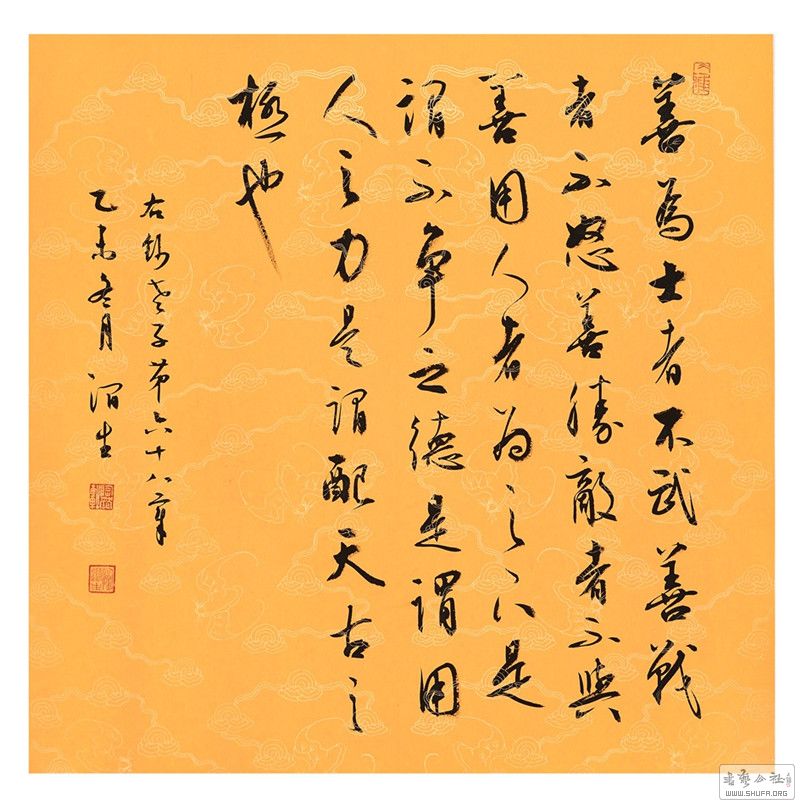 善為士者不武善戰
者不怒善勝敵者不與
善用人者為之下是
謂不争之德是謂用
人之力是謂配天古之
極也
右錄老子第六十八章
乙未冬月 渭生
書藝公社
WWW.SHUFA.ORG